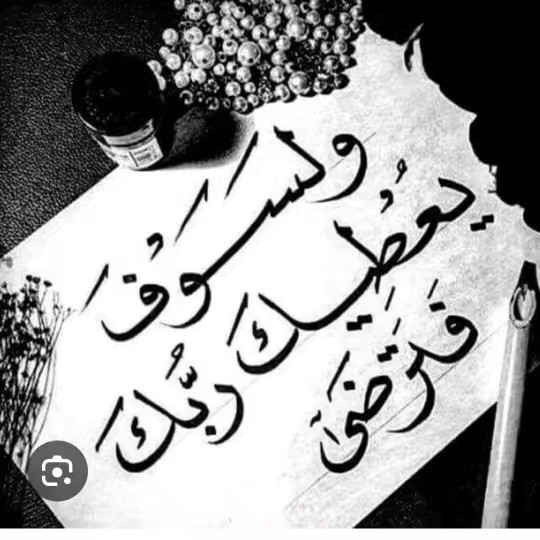 ولسَوفَ
يعُطيكَ رَبُّكَ
فَتَرضَىٰ